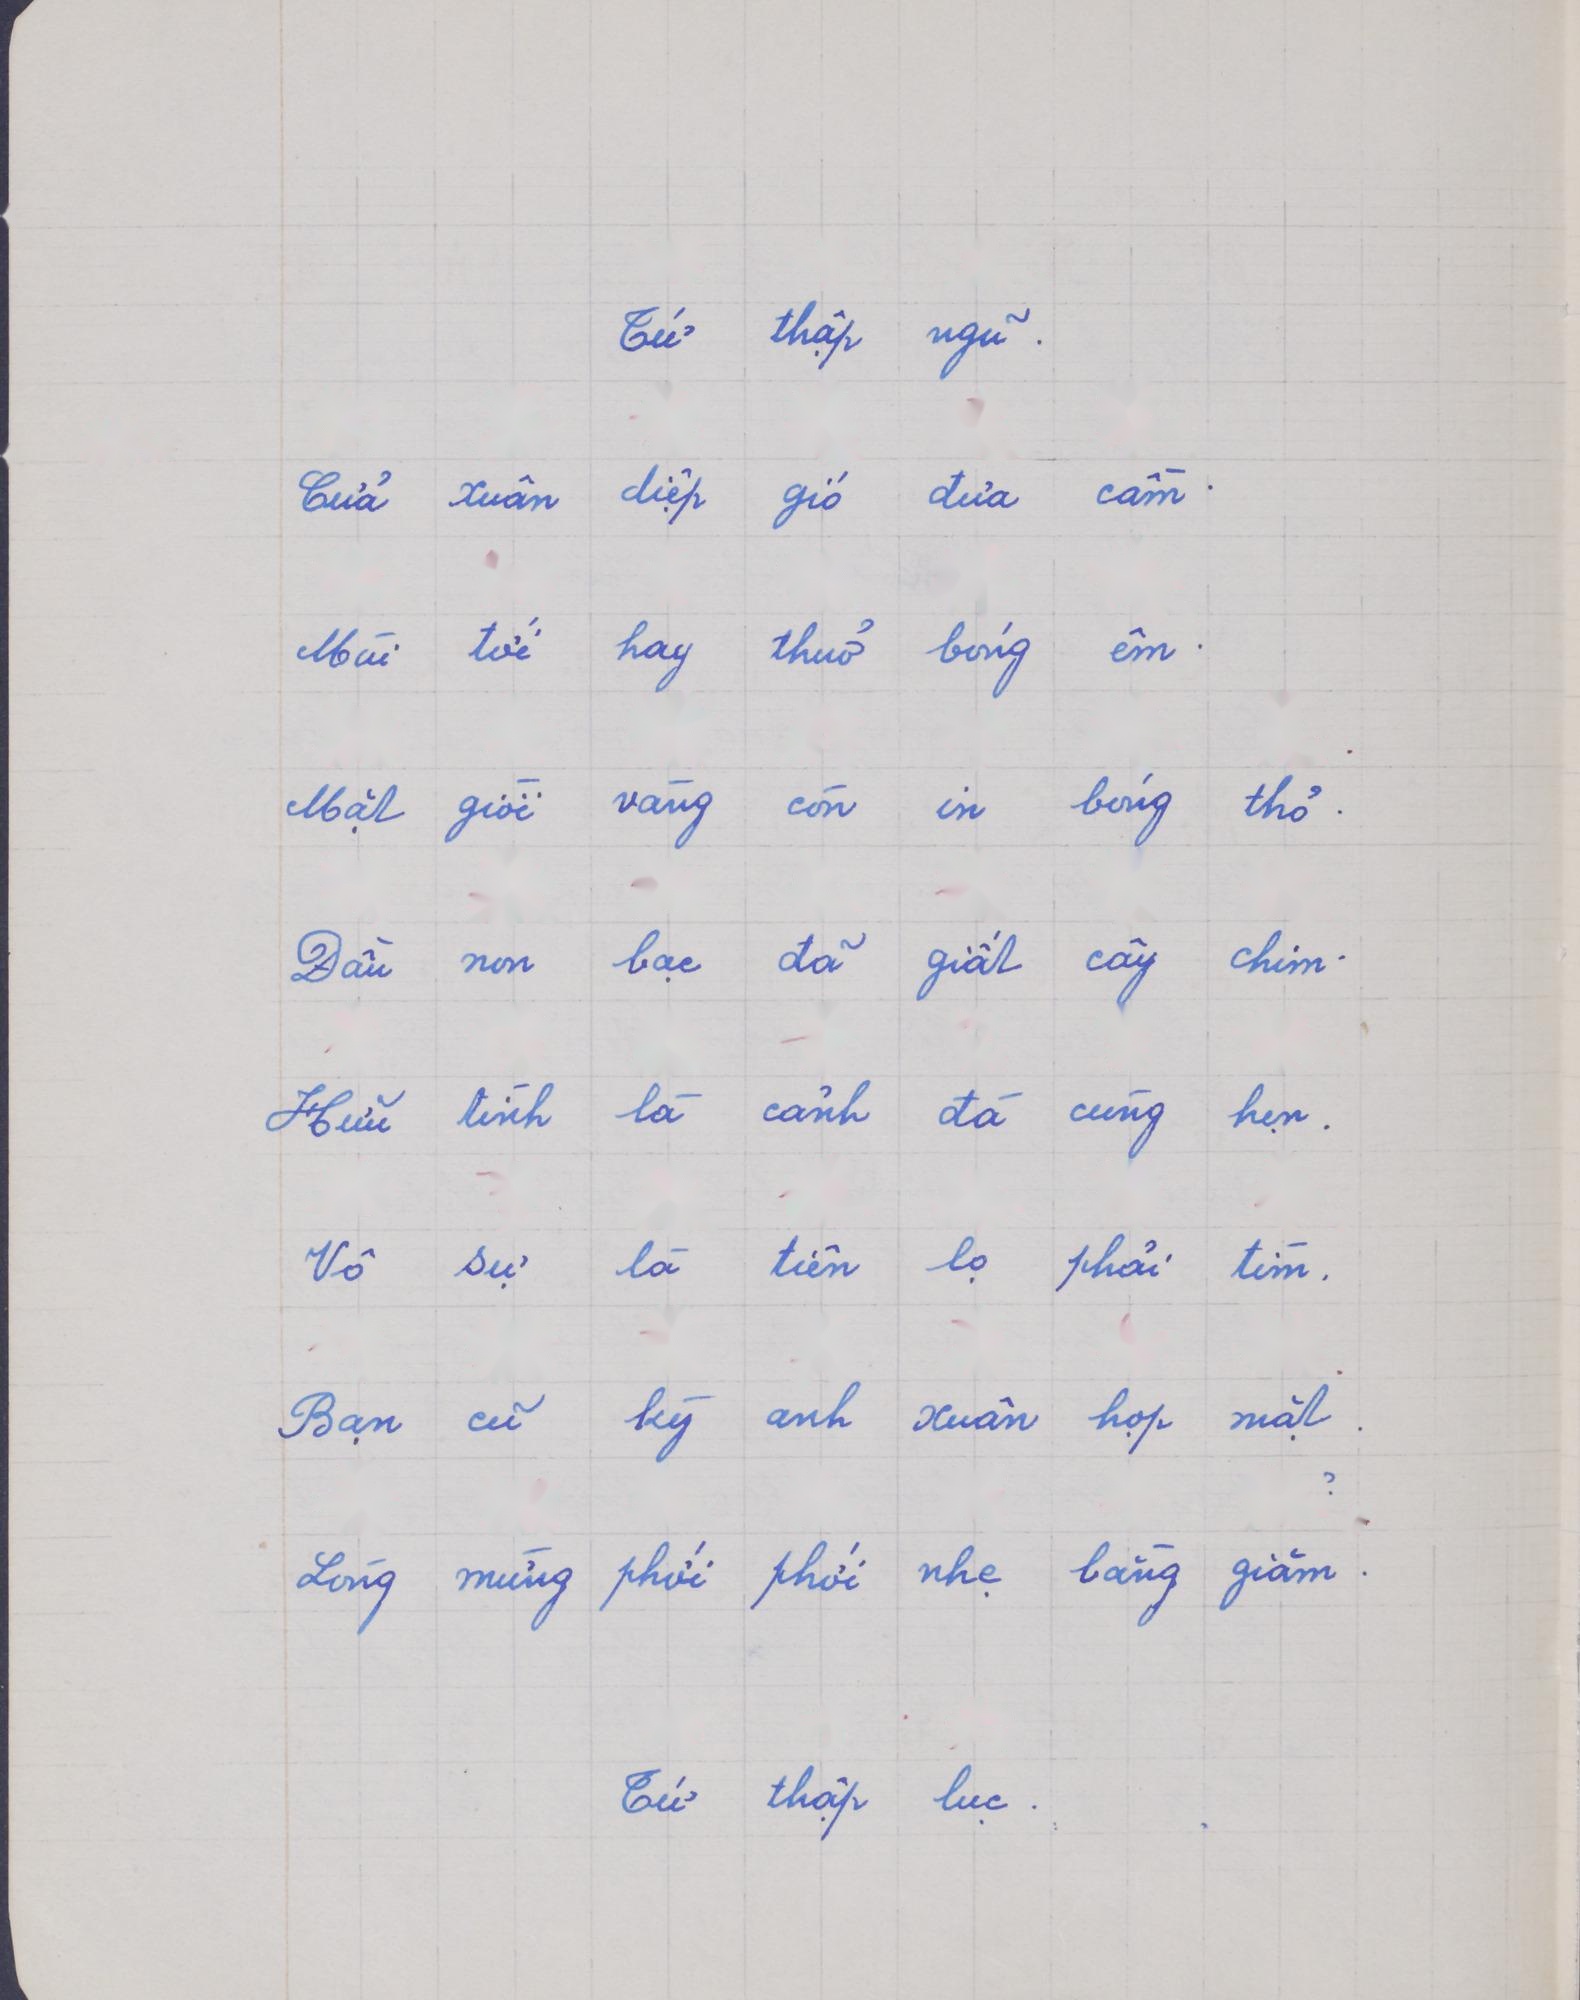 Tứ thập ngũ.
Cửa xuân diệp gió đưa cầm.
Mùi tới hay thuở bóng êm.
Mặt giời vàng còn in bóng thỏ.
Dầu non bạc đã giất cây chim.
Hữu tình là cảnh đà cùng hẹn.
Vô sự là tiên lọ phải tìm.
Bạn cũ kỳ anh xuân họp mặt.
?
Lòng mừng phới phới nhẹ bằng giăm.
Tứ thập lục.